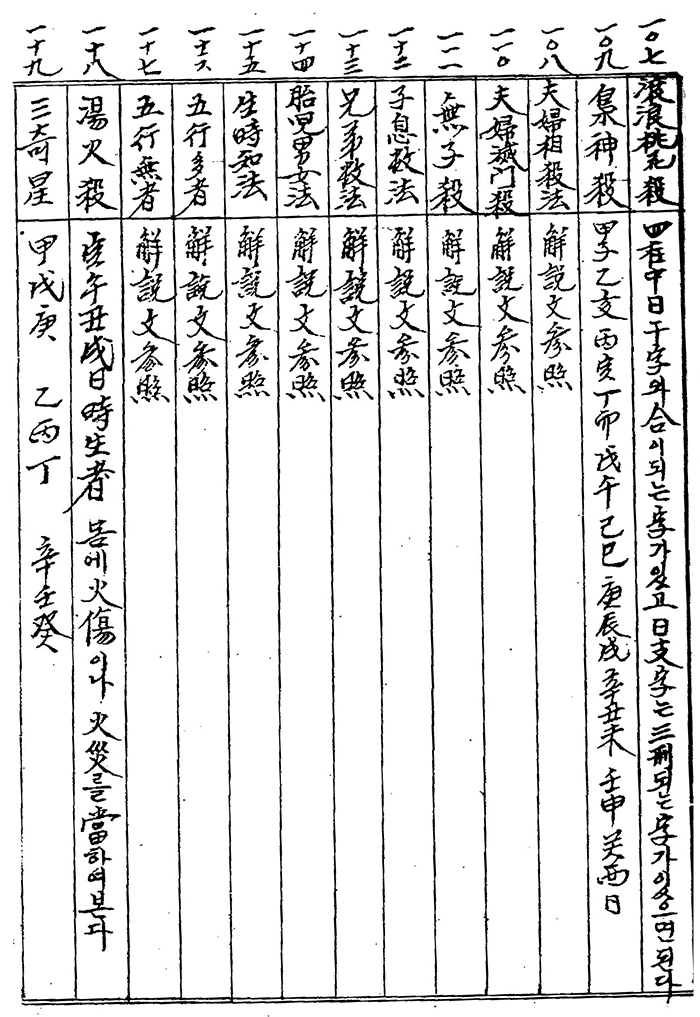 一〇七 滾浪桃花殺 四柱中日干字와 合이되는 字가있고 日支字는 三刑되는 字가 있으면 된다
一〇九 梟神殺 甲子乙亥 丙寅丁卯 戊午己巳 庚辰戌辛丑未 壬申癸酉日
一〇八 夫婦相殺法 解説文参照
一一〇 夫婦滅门殺 解説文参照
一一一 無子殺 解説文参照
一十二 子息殺法 解説文参照
一十三 兄弟殺法 解説文参照
一十四 胎児男女法 解説文参照
一十五 生時知法 解説文参照
一十六 五行多者 解説文参照
一十七 五行無者 解説文参照
一十八 湯火殺 寅午丑戌日時生者 몸에 火傷이나 火災를 當하여본다
一十九 三奇星 甲戊庚 乙丙丁 辛壬癸